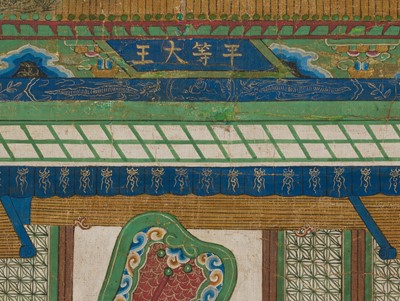 平等大王